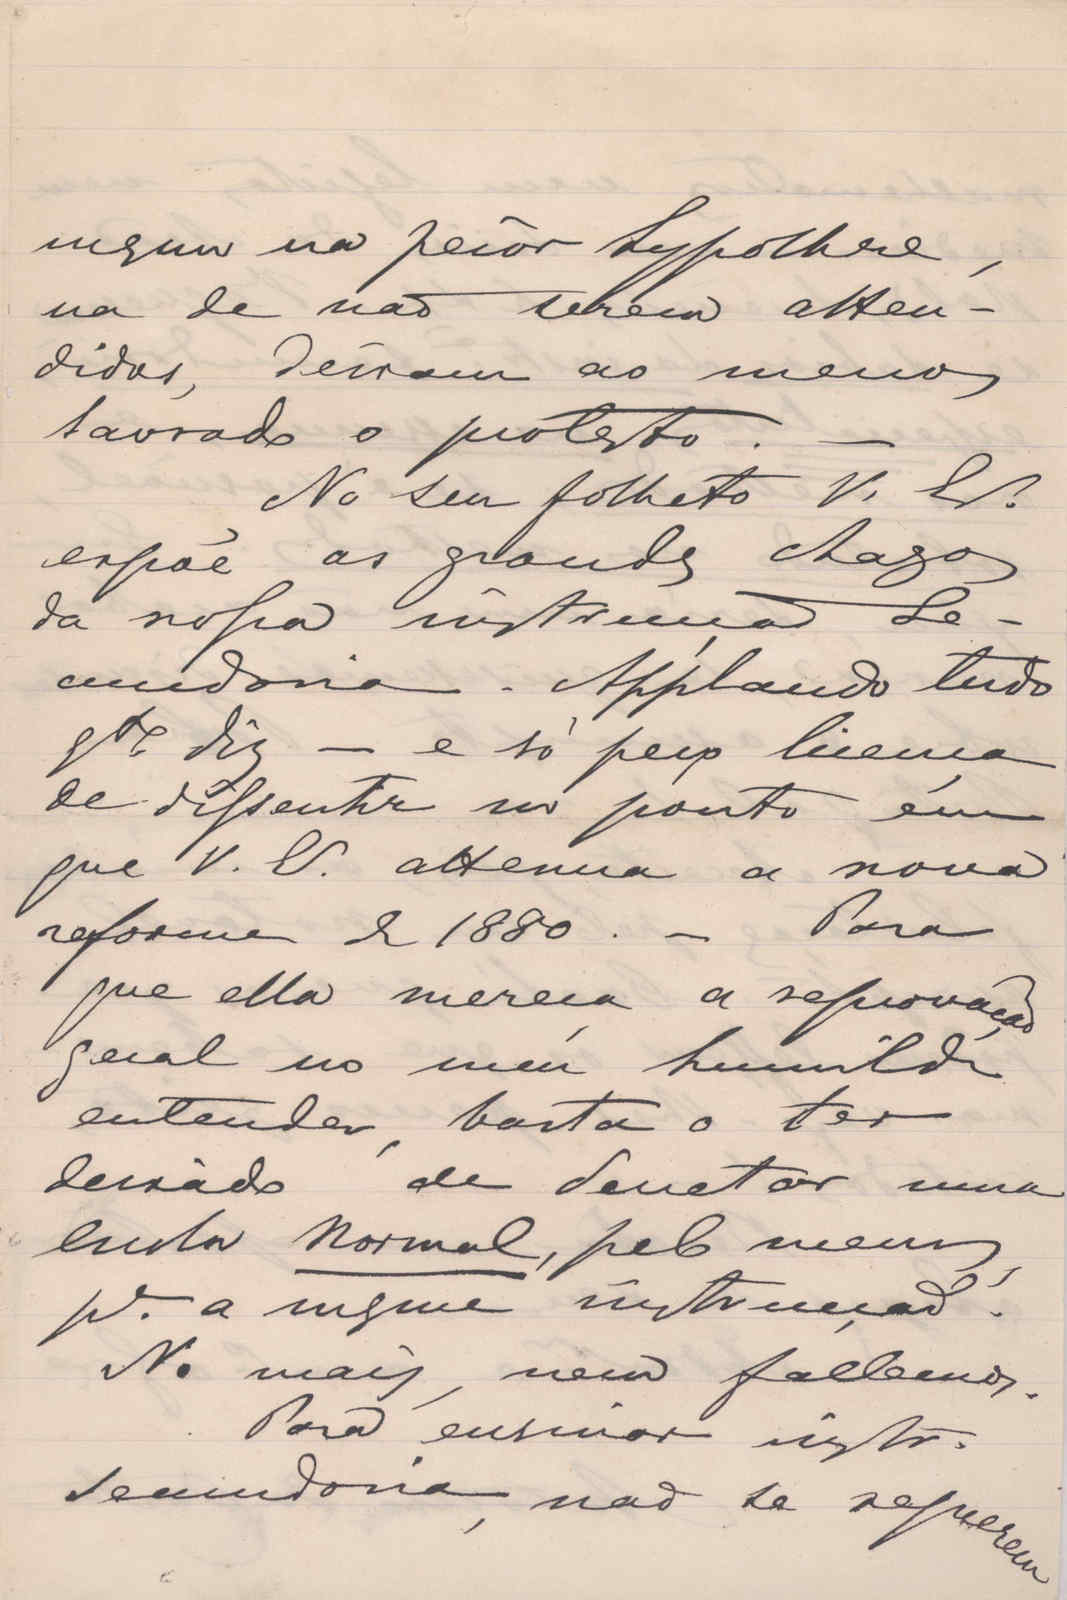 mesmo na peior hypothese,
na de não serem atten-
didos, deixam ao menos
lavrado o protesto. —
No seu folheto V. Ex.
expõe as grandes chagas
da nossa instrucção se-
cundaria. Applaudo tudo
q.to diz — e só peço licença
de dissentir no ponto em
que V. Ex. attenua a nova
reforma de 1880. — Para
que ella mereça a reprovação
geral no meu humilde
entender, basta o ter
deixado de decretar uma
escola Normal, pelo menos,
p.a a mesma instrucção.
No mais, nem fallemos.
Para ensinar instr.
secundaria, não se requerem